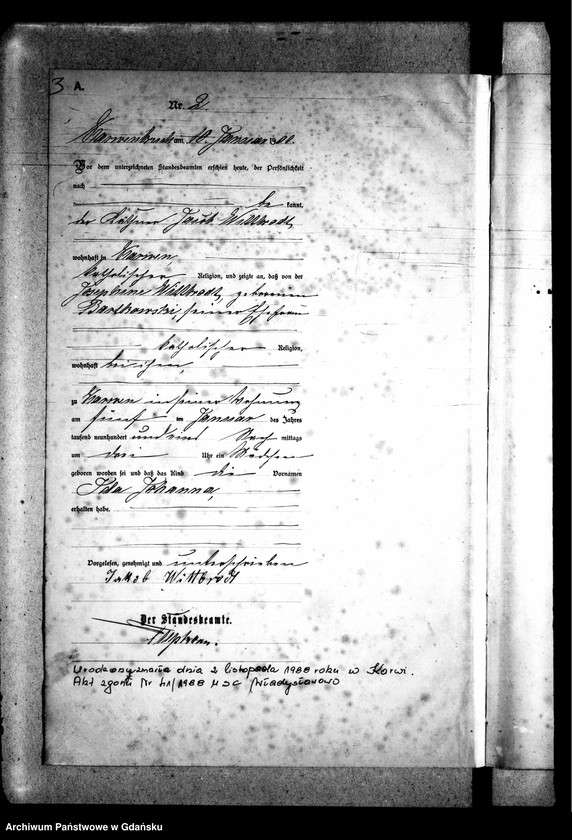 3 A.
Nr. 2.
am 10. Januar 19
Vor dem unterzeichneten Standesbeamten erschien heute, der Persönlichkeit
nach
be kannt,
der Käthner Jacob Wittbrodt,
wohnhaft in Karwen
katholischer Religion, und zeigte an, daß von der
Josephine Wittbrodt, geborenen
Bartkowski, seiner Ehefrau
katholischer Religion,
wohnhaft bei ihm,
zu Karwen in seiner Wohnung
am fünf ten Januar des Jahres
tausend neunhundert und eins Nach mittags
um drei Uhr ein Mädchen
geboren worden sei und daß das Kind die Vornamen
Ida Johanna,
erhalten habe.
Vorgelesen, genehmigt und unterschrieben
Jakob Wittbrodt
Der Standesbeamte.
Urodzona zmarła dnia 2 listopada 1988 roku w Karwi.
Akt zgonu Nr 41/1988 USC Władysławowo
Archiwum Państwowe w Gdańsku